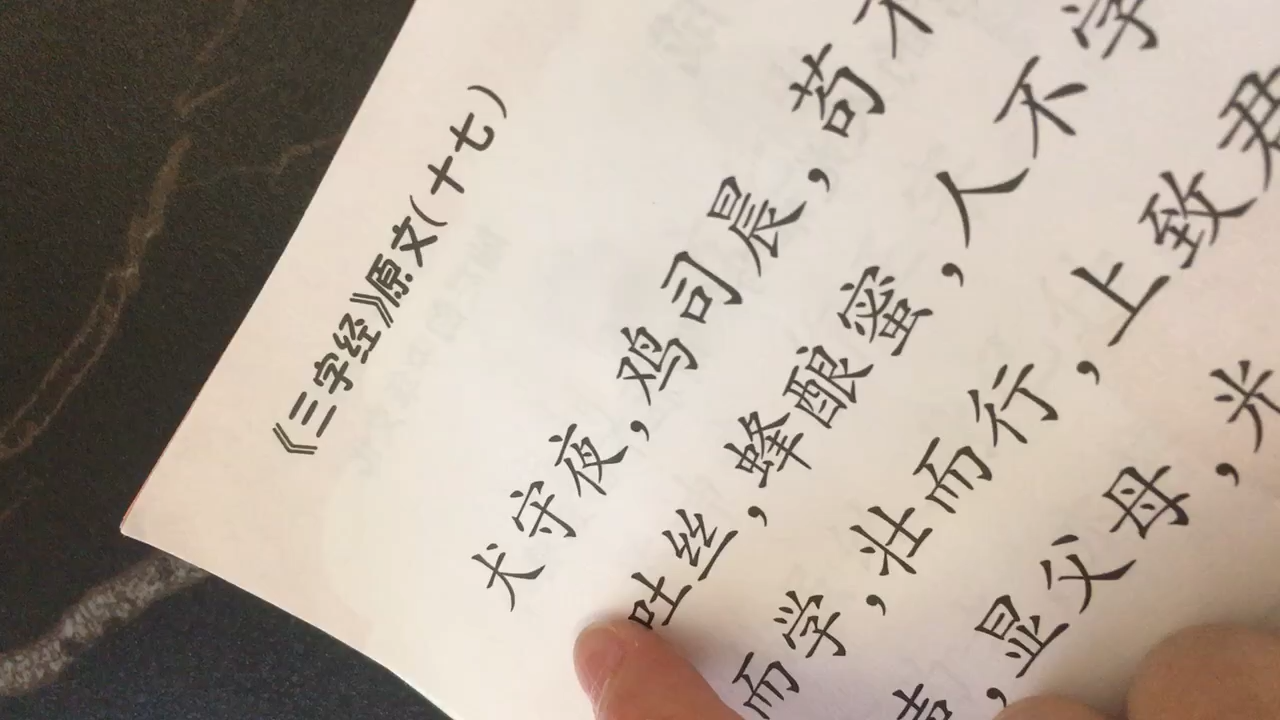 《三字经》原文(十七)
犬守夜,鸡司晨,苟不
吐丝,蜂酿蜜,人不字
而学,壮而行,上致君
声,显父母,光